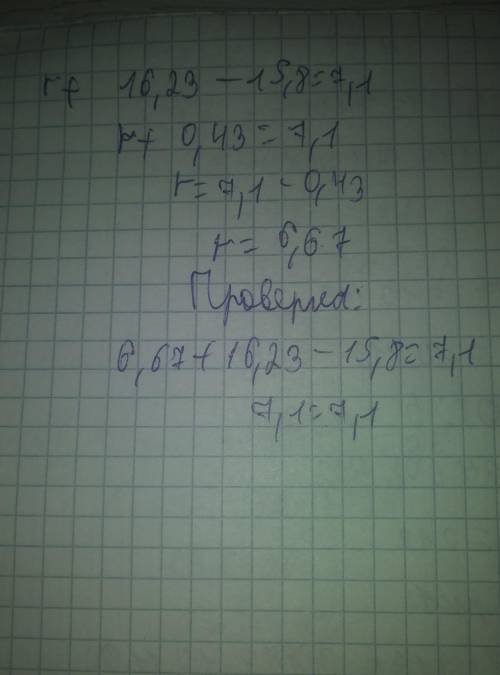 r+ 16,23 - 15,8 = 7,1
r+ 0,43 = 7,1
r = 7,1 - 0,43
r = 6,67
Проверка:
6,67 + 16,23 - 15,8 = 7,1
7,1 = 7,1